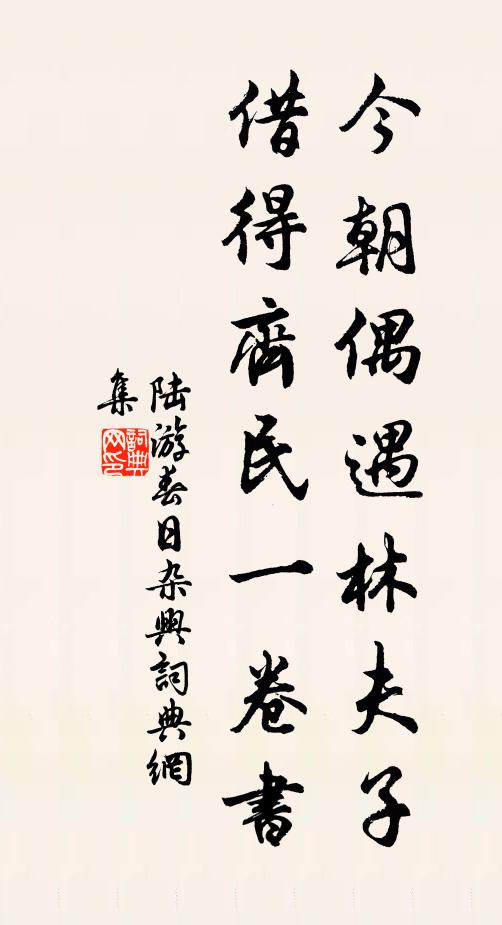 今朝偶遇林夫子
借得齊民一卷書
陆游春日杂興詞典網
集
詞典网印